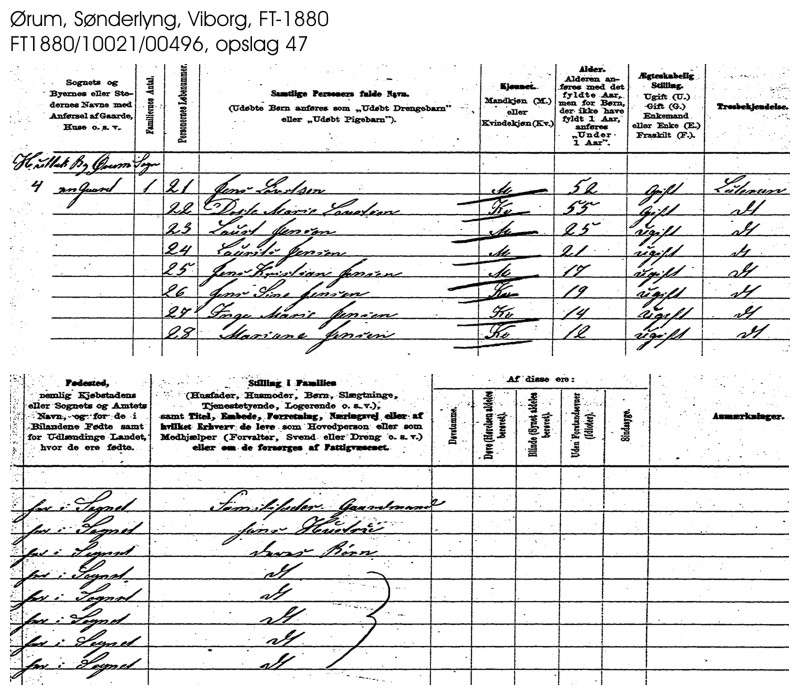 Ørum, Sønderlyng, Viborg, FT-1880
FT1880/10021/00496, opslag 47
Sognets og
Byernes eller Ste-
dernes Navne med
Anførsel af Gaarde,
Huse o. s. v.
Familiernes Antal.
Personernes Løbenummer.
Samtlige Personers fulde Navn.
(Udøbte Børn anføres som „Udøbt Drengebarn“
eller „Udøbt Pigebarn“).
Kjønnet.
Mandkjøn (M.)
eller
Kvindekjøn (Kv.)
Alder.
Alderen an-
føres med det
fyldte Aar,
men for Børn,
der ikke have
fyldt 1 Aar,
anføres
„Under
1 Aar“.
Ægteskabelig
Stilling.
Ugift (U.)
Gift (G.)
Enkemand
eller Enke (E.)
Fraskilt (F.).
Trosbekjendelse.
By Ørum Sogn
4 en Gaard 1 21 Jens Laursen M 52 Gift
22 Dorte Marie Laursen Kv 55 Gift dt
23 Laust Jensen M 25 ugift dt
24 Laurits Jensen M 21 ugift dt
25 Jens Kristian Jensen M 17 ugift dt
26 Jens Sine Jensen Kv 19 ugift dt
27 Inge Marie Jensen Kv 14 ugift dt
28 Mariane Jensen Kv 12 ugift dt
Fødested,
nemlig Kjøbstadens
eller Sognets og Amtets
Navn, og for de i
Bilandene Fødte samt
for Udlændinge Landet,
hvor de ere fødte.
Stilling i Familien
(Husfader, Husmoder, Børn, Slægtninge,
Tjenestetyende, Logerende o. s. v.),
samt Titel, Embede, Forretning, Næringsvej eller af
hvilket Erhverv de leve som Hovedperson eller som
Medhjælper (Forvalter, Svend eller Dreng o. s. v.)
eller om de forsørges af Fattigvæsenet.
Af disse ere:
Døvstumme.
Døve (Hørelsen aldeles
berøvet).
Blinde (Synet aldeles
berøvet).
Uden Forstandsevner
(Idioter).
Sindssyge.
Anmærkninger.
her i Sognet Familiefader Gaardmand
her i Sognet hans Hustru
her i Sognet deres Børn
her i Sognet dt
her i Sognet dt
her i Sognet dt
her i Sognet dt
her i Sognet dt